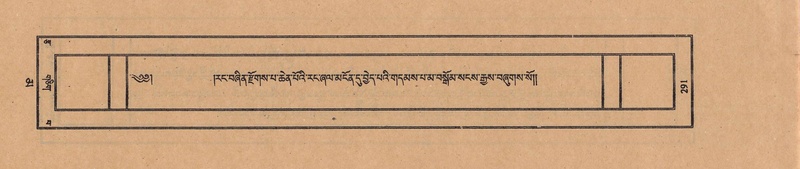 ༄༅། །རང་བཞིན་རྫོགས་པ་ཆེན་པོའི་རང་ཞལ་མངོན་དུ་བྱེད་པའི་གདམས་པ་མ་བསྒོམ་སངས་རྒྱས་བཞུགས་སོ༎
གཅིག
291